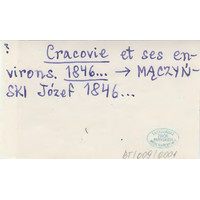 ?
Cracovie et ses en-
virons. 1846... → MĄCZYŃ-
SKI Józef 1846...
AT/009/0001